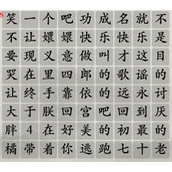 笑一个吧功成名就不
不让嫒嫒快乐快乐是
要现义意做叫才这目
哭在里四郎的歌谣的
让终手靠依的远永讨
大于朕回宫吧回到厌
胖4在好美的初最的
橘带着你逃跑七十老